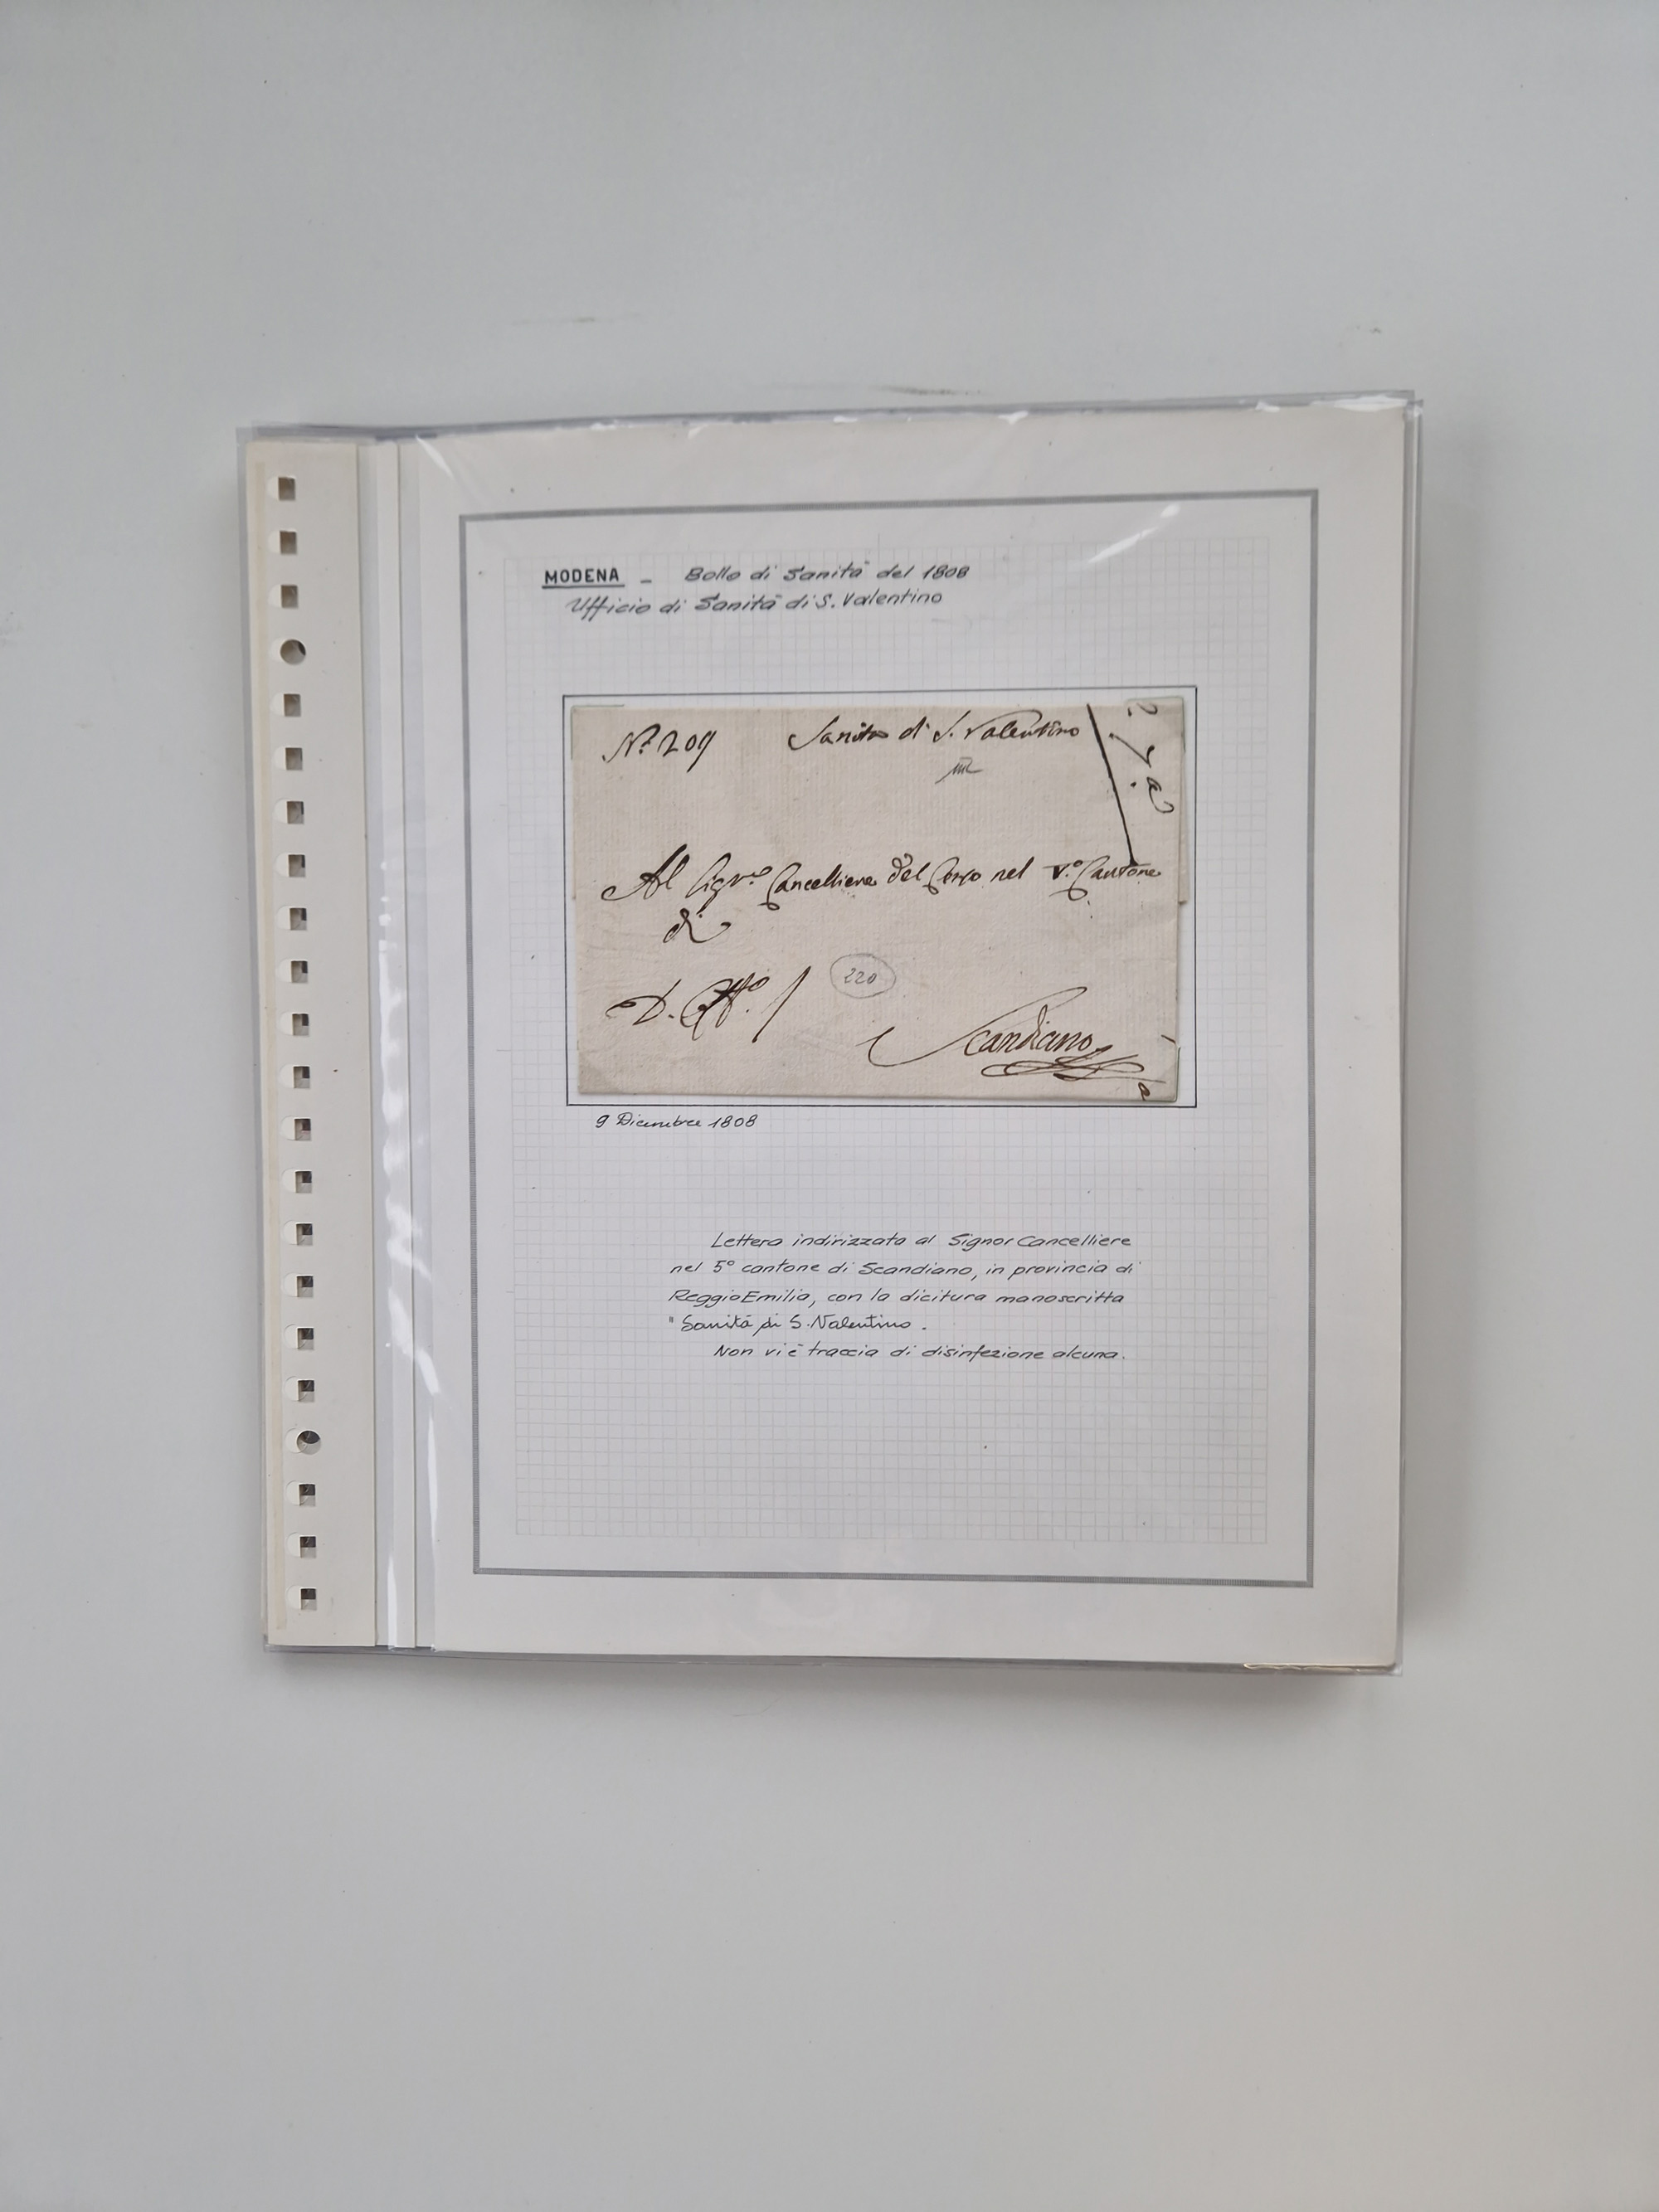 MODENA - Bollo di Sanità del 1808
Ufficio di Sanità di S. Valentino
N.º 209 Sanità di S. Valentino
Al Sigre. Cancelliere del nel V.º Cantone
di
220
Scandiano
9 Dicembre 1808
Lettera indirizzata al Signor Cancelliere
nel 5º cantone di Scandiano, in provincia di
Reggio Emilia, con la dicitura manoscritta
"Sanità di S. Valentino.
Non vi è traccia di disinfezione alcuna.